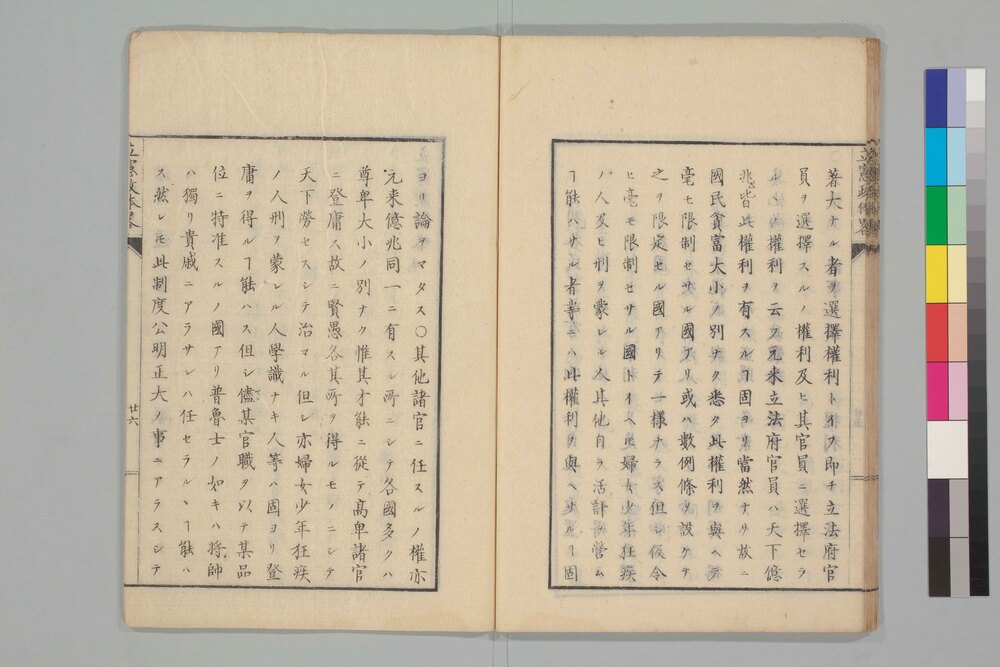 著大ナル者ヲ選擇權利トイフ即チ立法府官
員ヲ選擇スルノ權利及ヒ其官員ニ選擇セラ
ルヽノ權利ヲ云フ元来立法府官員ハ天下億
兆皆此權利ヲ有スルヿ固ヨリ當然ナリ故ニ
國民貧富大小ノ別ナク悉ク此權利ヲ與ヘテ
毫モ限制セサル國アリ或ハ數例條ヲ設ケテ
之ヲ限定セル國アリテ一樣ナラス但シ仮令
ヒ毫モ限制セサル國トイヘ𪜈婦女少年狂疾
ノ人及ヒ刑ヲ蒙レル人其他自ラ活計ヲ營ム
ヿ能ハサル者等ニハ此權利ヲ與ヘサルヿ固
立憲政体略
ヨリ論ヲマタス〇其他諸官ニ任スルノ權亦
元来億兆同一ニ有スル所ニシテ各國多クハ
尊卑大小ノ別ナク惟其才能ニ從テ高卑諸官
ニ登庸ス故ニ賢愚各其所ヲ得ルモノニシテ
天下勞セスシテ治マル但シ亦婦女少年狂疾
ノ人刑ヲ蒙レル人學識ナキ人等ハ固ヨリ登
庸ヲ得ルヿ能ハス但シ儘某官職ヲ以テ某品
位ニ特准スルノ國アリ普魯士ノ如キハ将帥
ハ獨リ貴戚ニアラサレハ任セラルヽヿ能ハ
ス然レ𪜈此制度公明正大ノ事ニアラスシテ
立憲政体略
廿六